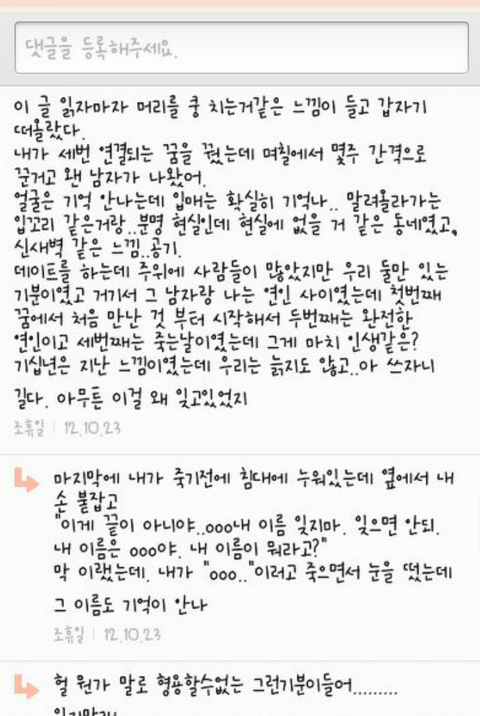 댓글을 등록해주세요.
이 글 읽자마자 머리를 쿵 치는거같은 느낌이 들고 갑자기
떠올랐다.
내가 세번 연결되는 꿈을 꿨는데 며칠에서 몇주 간격으로
꾼거고 왠 남자가 나왔어.
얼굴은 기억 안나는데 입매는 확실히 기억나.. 말려올라가는
입꼬리 같은거랑..분명 현실인데 현실에 없을 거 같은 동네였고,
신새벽 같은 느낌..공기.
데이트를 하는데 주위에 사람들이 많았지만 우리 둘만 있는
기분이였고 거기서 그 남자랑 나는 연인 사이였는데 첫번째
꿈에서 처음 만난 것 부터 시작해서 두번째는 완전한
연인이고 세번째는 죽는날이였는데 그게 마치 인생같은?
기십년은 지난 느낌이였는데 우리는 늙지도 않고..아 쓰자니
길다. 아무튼 이걸 왜 잊고있었지
조휴일 | 12.10.23
마지막에 내가 죽기전에 침대에 누워있는데 옆에서 내
손 붙잡고
"이게 끝이 아니야..ooo내 이름 잊지마. 잊으면 안되.
내 이름은 ooo야. 내 이름이 뭐라고?"
막 이랬는데. 내가 "ooo.."이러고 죽으면서 눈을 떴는데
그 이름도 기억이 안나
조휴일 | 12.10.23
헐 뭔가 말로 형용할수없는 그런기분이들어.........